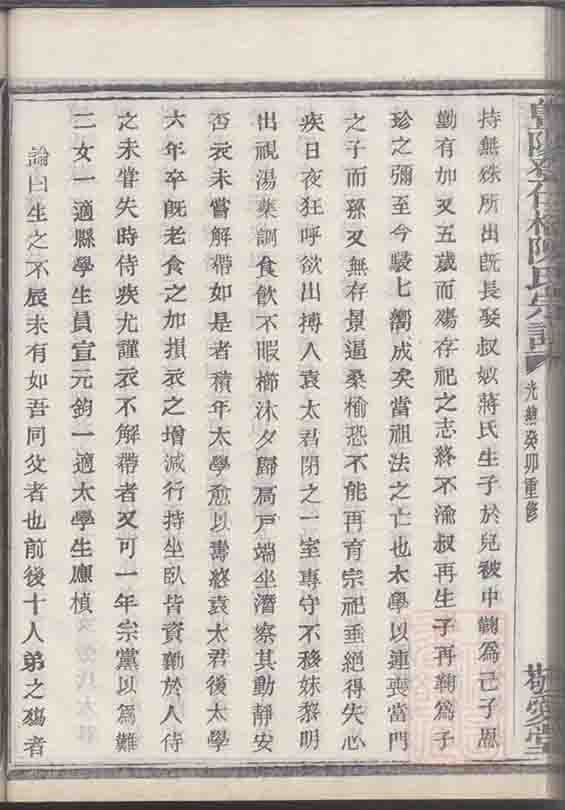 持無殊所出既長娶叔姒蔣氏生子於兒被中鞠為己子恩
勤有加又五歲而殤存祀之志終不渝叔再生子再鞠為子
珍之彌至今駸七嚮成矣當祖法之亡也太學以連喪當門
之子而孫又無存景逼桑榆恐不能再育宗祀垂絕得失心
疾日夜狂呼欲出搏人袁太君閉之一室專守不移妹黎明
出視湯藥調食飲不暇櫛沐夕歸扃戶端坐潛察其動靜安
否衣未嘗解帶如是者積年太學愈以壽終袁太君後太學
六年卒既老食之加損衣之增減行持坐臥皆資勷於人侍
之未嘗失時侍疾尤謹衣不解帶者又可一年宗黨以為難
二女一適縣學生員宣元鈞一適太學生應楨
論曰生之不辰未有如吾同父者也前後十人弟之殤者
陳氏宗譜
光緒癸卯重修
敬愛堂